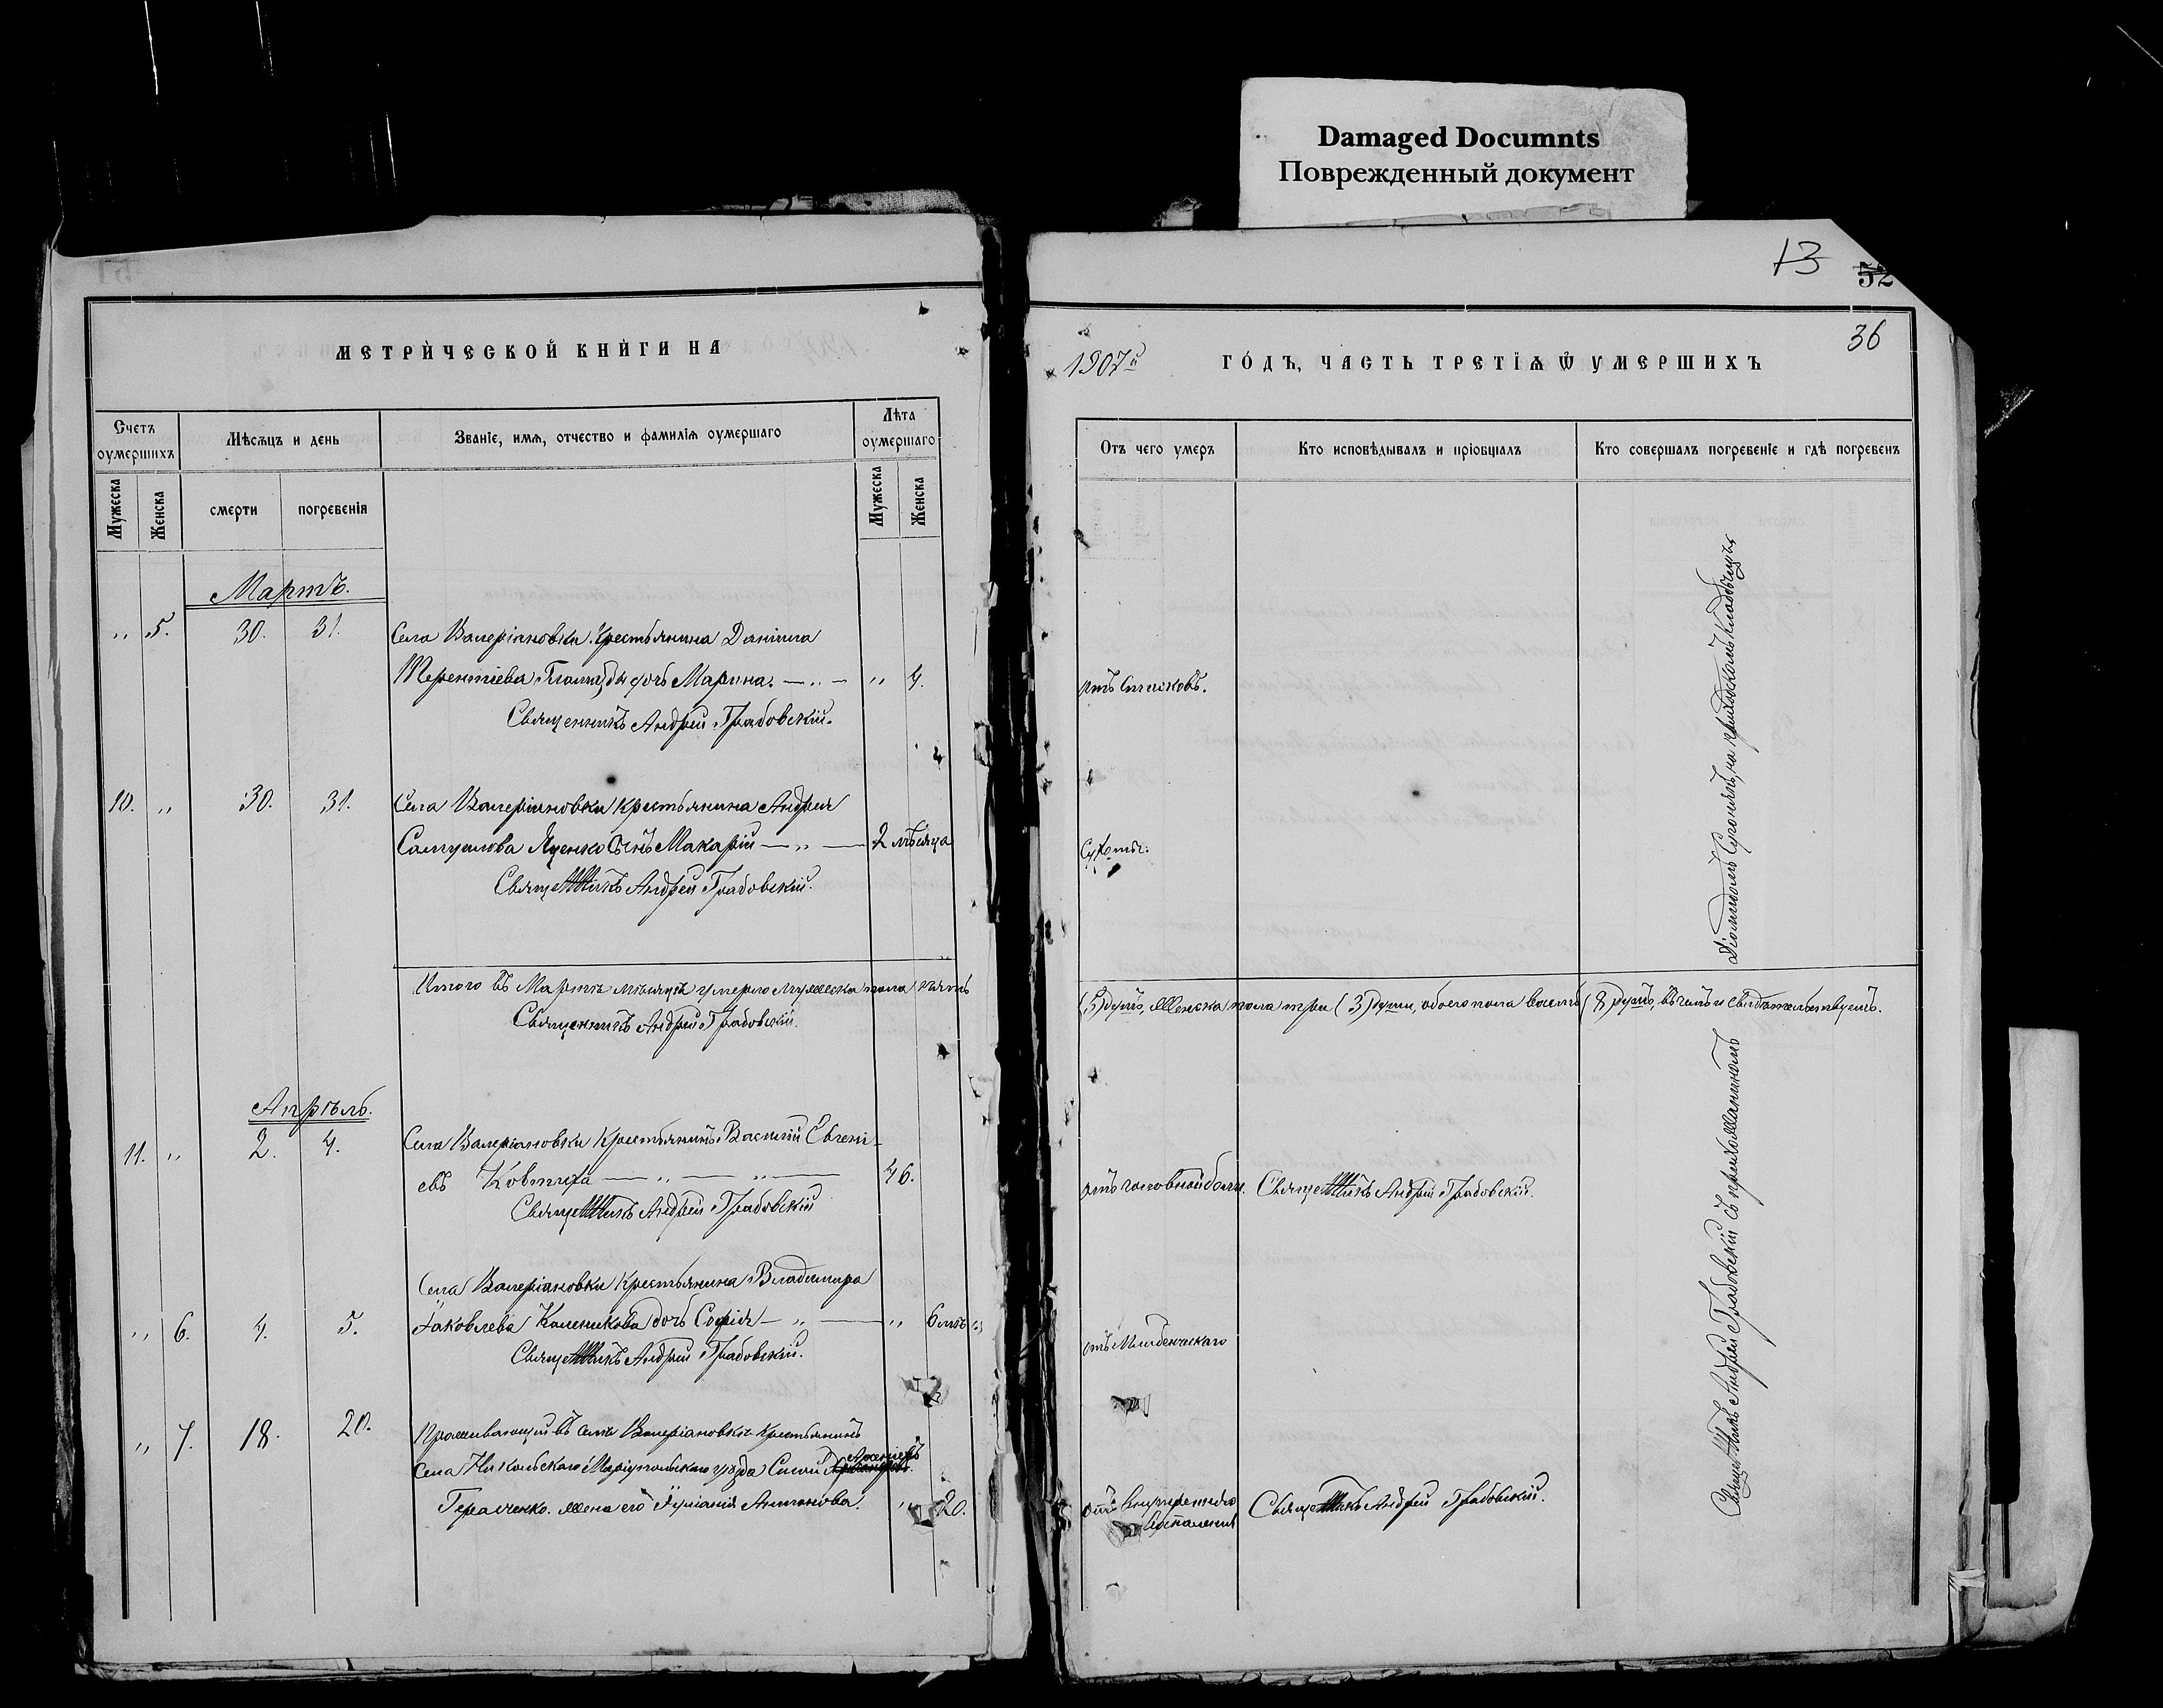 Damaged Documnts
Поврежденный документ
МЕТРИЧЕСКОЙ КНИГИ НА
Счетъ оумершихъ
Мѣсяцъ и день
Званіе, имя, отчество и фамилія оумершаго
Лѣта оумершаго
Мужеска
Женска
смерти
погребенія
Мужеска
Женска
Мартъ.
" 5. 30. 31. Села Валеріановки крестьянина Даніила
Терентіева дочь Марина. — " — " 4.
Священникъ Андрей Грабовскій.
10. " 30. 31. Села Валеріановки крестьянина Андрея
Самуилова Яценко сынъ Макарій — " — 2 мѣсяца
Священникъ Андрей Грабовскій.
Итого въ Мартѣ мѣсяцѣ умерло мужеска пола пять
Священникъ Андрей Грабовскій.
Апрѣль.
11. " 2. 4. Села Валеріановки крестьянинъ Василій Евгені-
евъ Ковтуха — " — " — 46.
Священникъ Андрей Грабовскій
Села Валеріановки крестьянина Владиміра
" 6. 4. 5. Іаковлева Каленикова дочь Софія — " — " 6 мѣс
Священникъ Андрей Грабовскій.
" 7. 18. 20. Проживающій въ селѣ Валеріановкѣ крестьянинъ
села Никольскаго Маріупольскаго уѣзда
Герасченко. жена его Іуліанія Антонова. " 20.
13
52
36
1907й ГОДЪ, ЧАСТЬ ТРЕТІЯ Ѿ УМЕРШИХЪ
Отъ чего умеръ
Кто исповѣдывалъ и пріобщалъ
Кто совершалъ погребеніе и гдѣ погребенъ
(5) душъ, женска пола три (3) души, обоего пола восемь (8) душъ, въ чемъ и свидѣтельствуемъ.
отъ головной боли. Священникъ Андрей Грабовскій.
отъ младенческаго
отъ внутренняго
воспаленія Священникъ Андрей Грабовскій.
на приходскомъ кладбищѣ
Священникъ Андрей Грабовскій съ